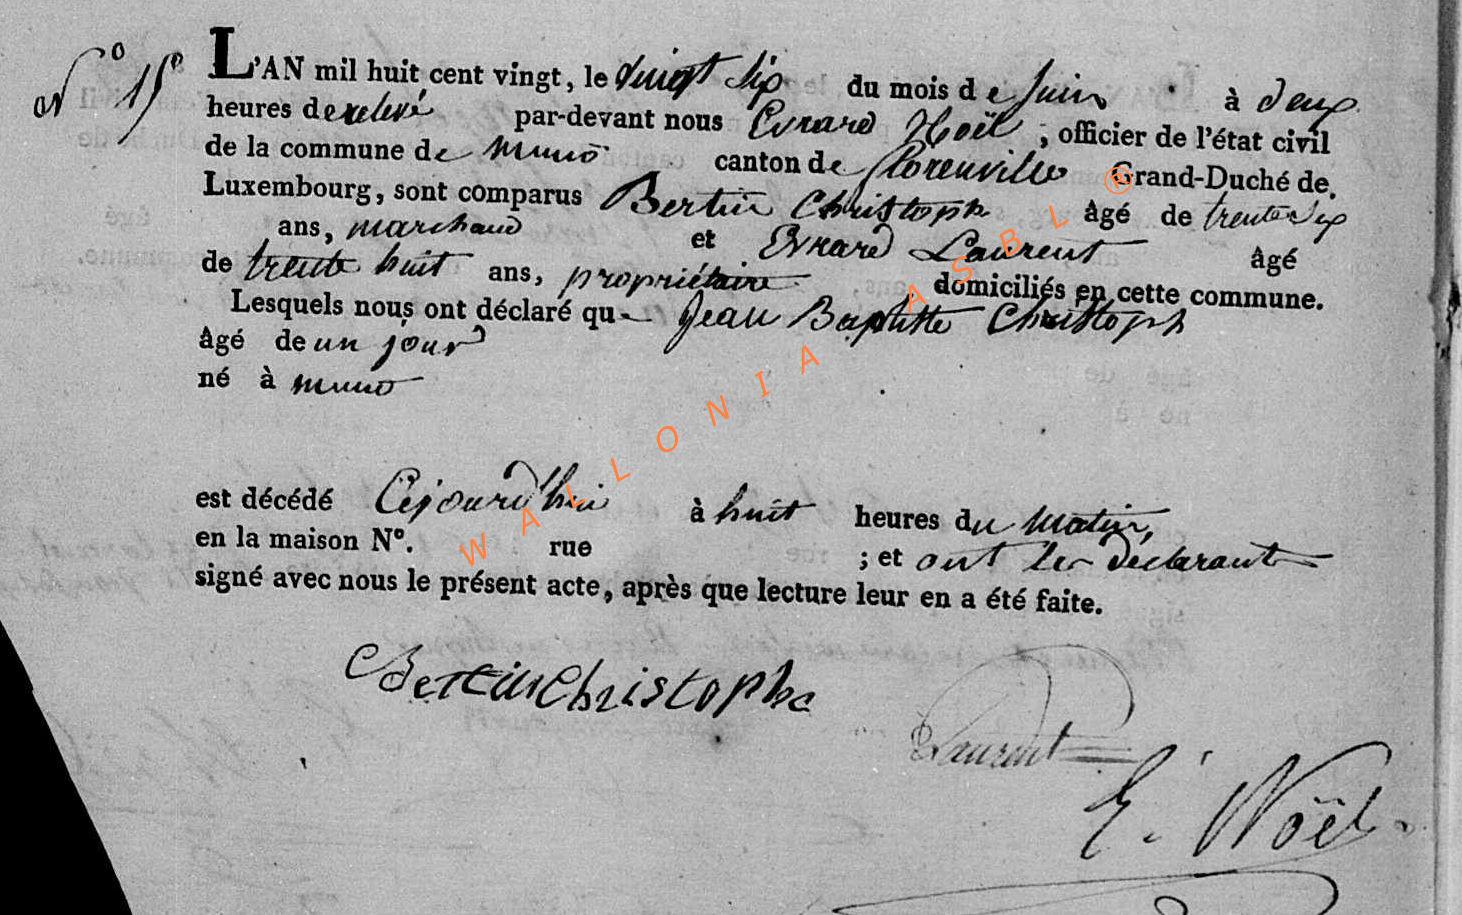 No 15e
L'AN mil huit cent vingt, le vingt six du mois de Juin à deux
heures de relevé par-devant nous Evrard Noël, officier de l'état civil
de la commune de muno canton de florenville Grand-Duché de
Luxembourg, sont comparus Bertin Christoph âgé de trente six
ans, marchand et Evrard Laurent âgé
de trente huit ans, propriétaire domiciliés en cette commune.
Lesquels nous ont déclaré que Jean Baptiste Christoph
âgé de un jour
né à muno
est décédé Cejourd'hui à huit heures du Matin,
en la maison No. rue ; et ont les déclarants
signé avec nous le présent acte, après que lecture leur en a été faite.
Bertin Christophe
Laurent
E. Noël
WALLONIA ASBL ®